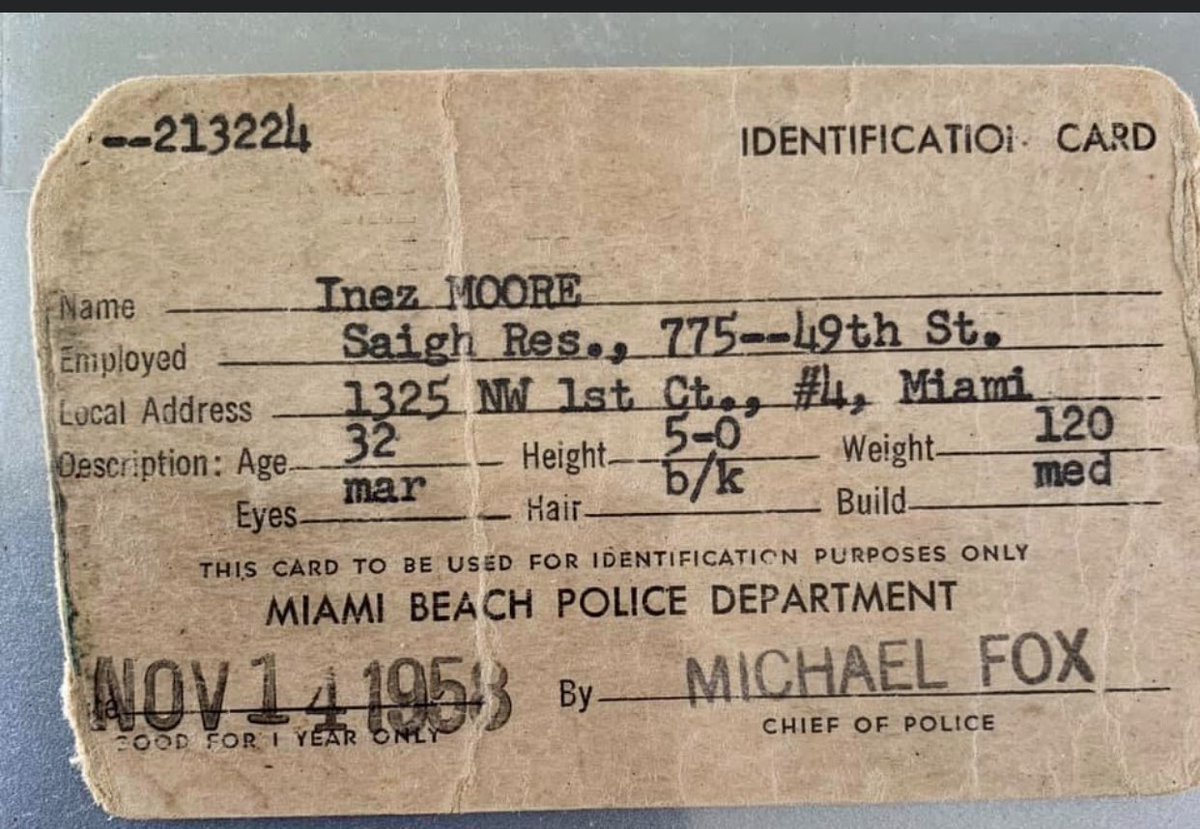 --213224 IDENTIFICATION CARD
Name Inez MOORE
Employed Saigh Res., 775--49th St.
Local Address 1325 NW 1st Ct., #4, Miami
Description: Age 32 Height 5-0 Weight 120
Eyes mar Hair b/k Build med
THIS CARD TO BE USED FOR IDENTIFICATION PURPOSES ONLY
MIAMI BEACH POLICE DEPARTMENT
NOV 14 1958 By MICHAEL FOX
GOOD FOR 1 YEAR ONLY CHIEF OF POLICE